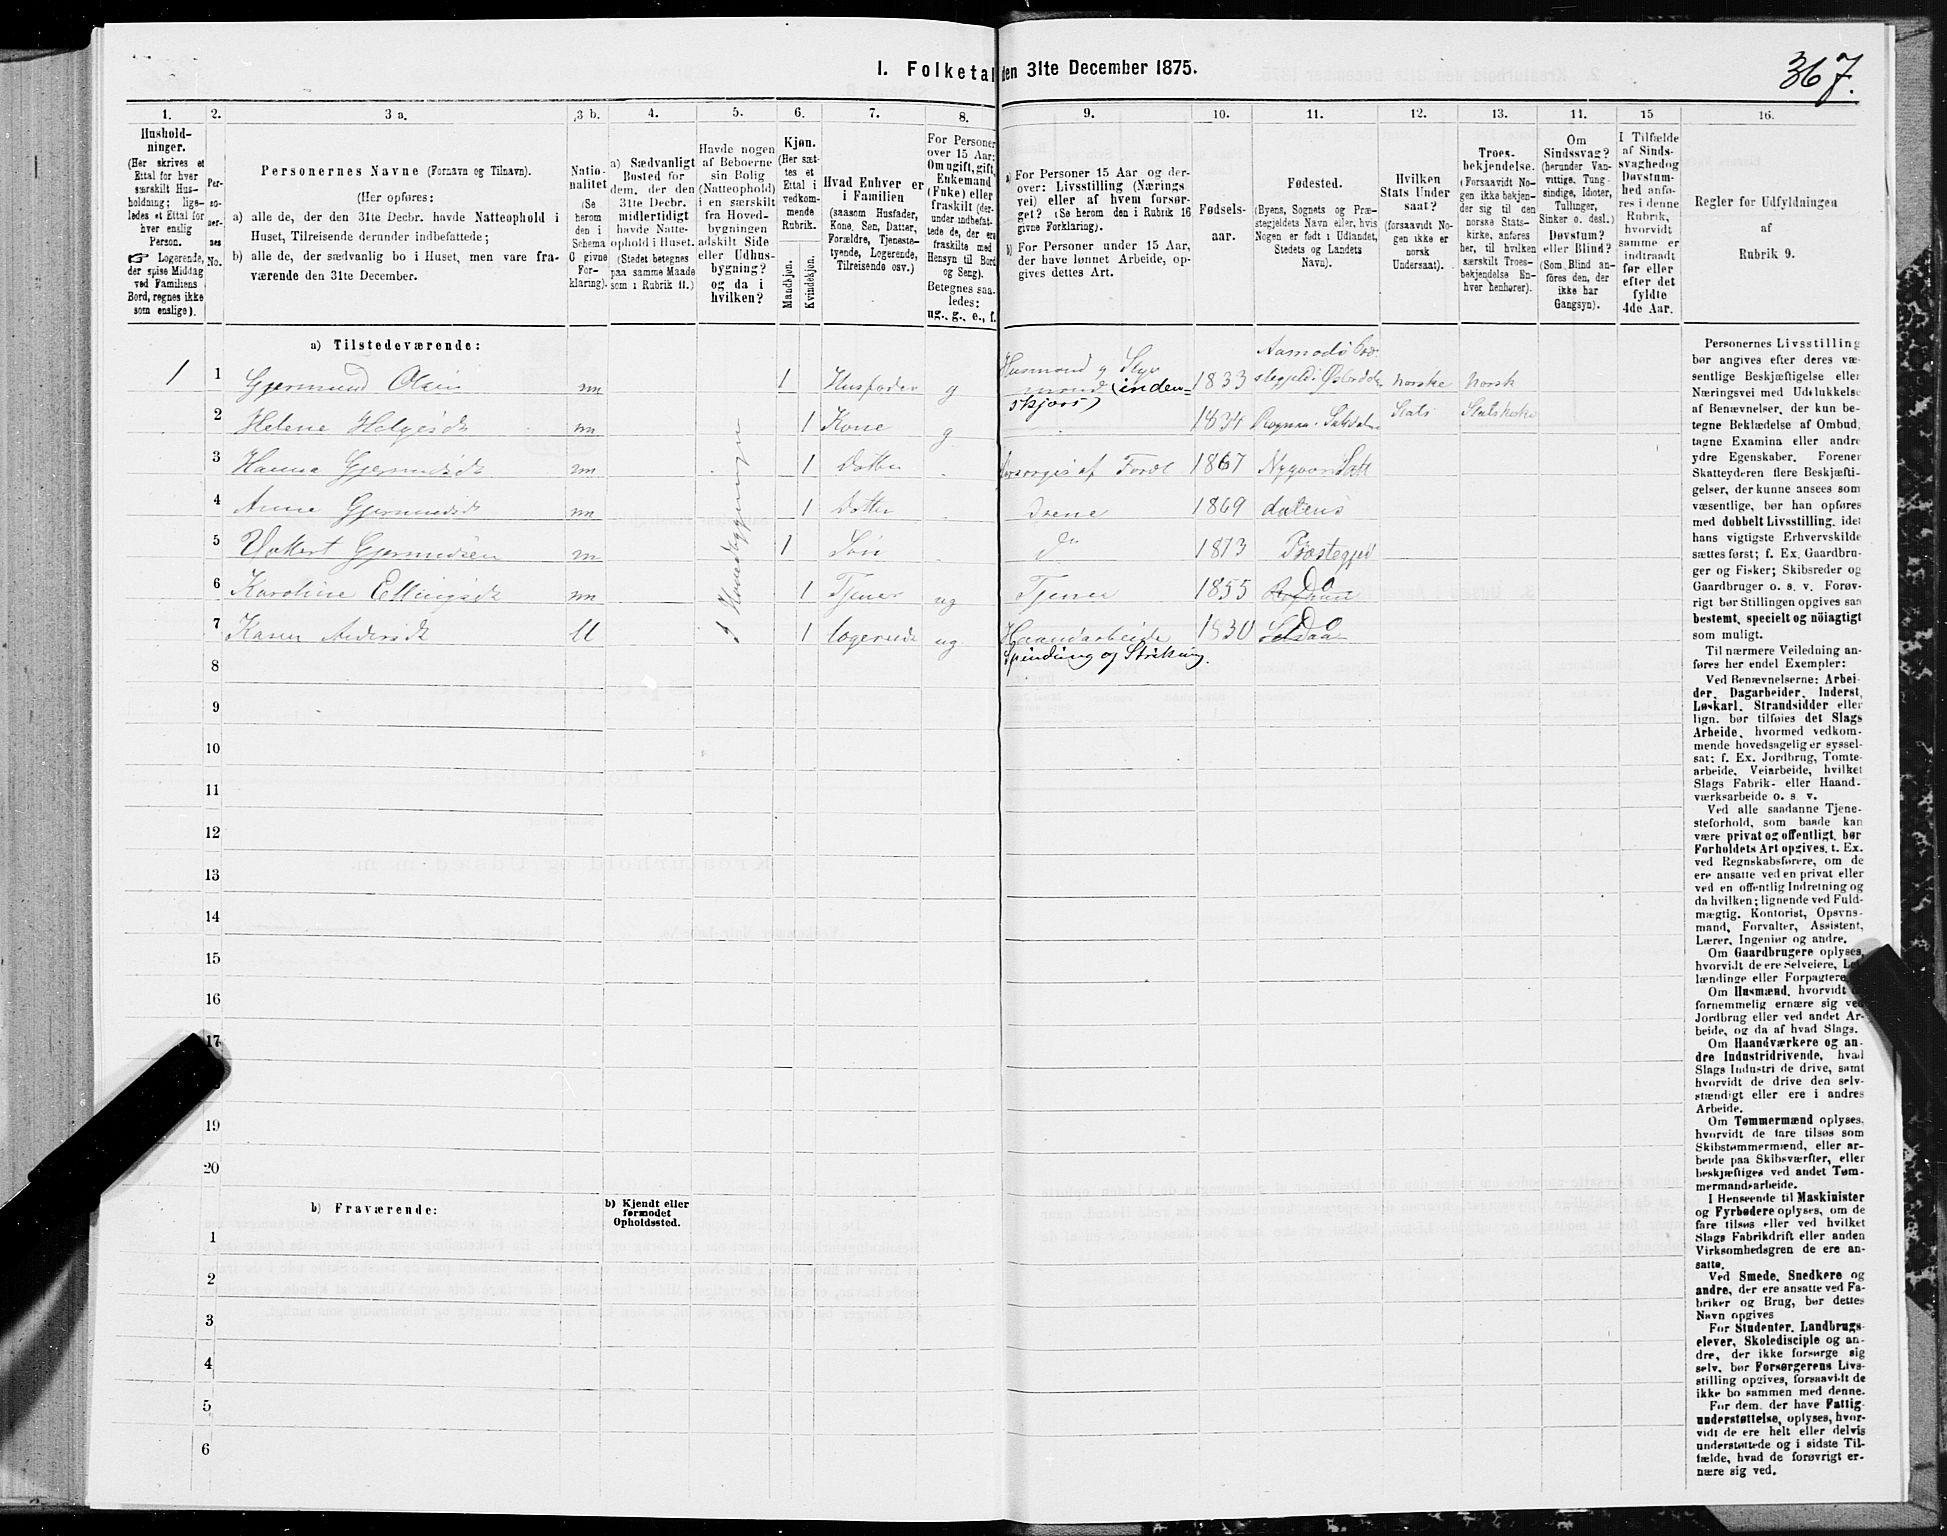 367.
I. Folketal den 31te December 1875.
1. 2. 3 a. 3 b. 4. 5. 6. 7. 8. 9. 10. 11. 12. 13. 14. 15 16.
Hushold-
ninger.
(Her skrives et
Ettal for hver
særskilt Hus-
holdning; lige-
ledes et Ettal for
hver enslig
Person.
☞ Logerende,
der spise Middag
ved Familiens
Bord, regnes ikke
som enslige).
Per-
so-
ner-
nes
No.
Personernes Navne (Fornavn og Tilnavn).
(Her opføres:
a) alle de, der den 31te Decbr. havde Natteophold i
Huset, Tilreisende derunder indbefattede;
b) alle de, der sædvanlig bo i Huset, men vare fra-
værende den 31te December.
Natio-
nalitet
(Se
herom
den i
Schema
C givne
For-
klaring).
a) Sædvanligt
Bosted for
dem, der den
31te Decbr.
midlertidigt
havde Natte-
ophold i Huset.
(Stedet betegnes
paa samme Maade
som i Rubrik 11.)
Havde nogen
af Beboerne
sin Bolig
(Natteophold)
i en særskilt
fra Hoved-
bygningen
adskilt Side
eller Udhus-
bygning?
og da i
hvilken?
Kjøn.
(Her sæt-
tes et
Ettal i
vedkom-
mende
Rubrik.
Mandkjøn.
Kvindekjøn.
Hvad Enhver er
i Familien
(saasom Husfader,
Kone, Søn, Datter,
Forældre, Tjeneste-
tyende, Logerende,
Tilreisende osv.)
For Personer
over 15 Aar:
Om ugift, gift,
Enkemand
(Enke) eller
fraskilt (der-
under indbefat-
tede de, der ere
fraskilte med
Hensyn til Bord
og Seng).
Betegnes saa-
ledes:
ug., g., e., f.
a) For Personer 15 Aar og der-
over: Livsstilling (Nærings
vei) eller af hvem forsør-
get? (Se herom den i Rubrik 16
givne Forklaring).
b) For Personer under 15 Aar,
der have lønnet Arbeide, op-
gives dettes Art.
Fødsels-
aar.
Fødested.
(Byens, Sognets og Præ-
stegjeldets Navn eller, hvis
Nogen er født i Udlandet,
Stedets og Landets
Navn).
Hvilken
Stats Under
saat?
(forsaavidt No-
gen ikke er
norsk
Undersaat).
Troes-
bekjendelse.
(Forsaavidt No-
gen ikke bekjen-
der sig til den
norske Stats-
kirke, anføres
her, til hvilken
særskilt Troes-
bekjendelse En-
hver henhører).
Om
Sindssvag?
(herunder Van-
vittige, Tung-
sindige, Idioter,
Tullinger,
Sinker o. desl.)
Døvstum?
eller Blind?
(Som Blind an-
føres den, der
ikke har
Gangsyn).
I Tilfælde
af Sinds-
svaghed og
Døvstum-
hed anfø-
res i denne
Rubrik,
hvorvidt
samme er
indtraadt
før eller
efter det
fyldte
4de Aar.
Regler for Udfyldningen
af
Rubrik 9.
a) Tilstedeværende:
1 1 Gjermund Olsen nn 1 Husfader g Husmand g (inden- skjærs) 1833 Norske Norsk
2 Helene Helgesdt nn 1 Kone g 1834 Saltdalen Stats Statskirke
3 Hanna Gjermudsdt nn 1 Datter Forsørges af Foræl 1867 Salt
4 Anne Gjermudsdt nn 1 Datter drene 1869 dalens
5 Gjermudsen nn 1 Søn do 1873 Præstegjed
6 Karoline Ellingsdt nn 1 Tjener ug Tjener 1855 Do
7 Karen Andersdt 1 logerende ug Haandarbeide 1830 Do
Spinding og Strikning.
I Hovedbygningen
8
9
10
11
12
13
14
15
16
17
19
20
b) Fraværende:
b) Kjendt eller
formodet
Opholdssted.
1
2
3
4
5
6
Personernes Livsstilling
bør angives efter deres væ-
sentlige Beskjæftigelse eller
Næringsvei med Udelukkelse
af Benævnelser, der kun be-
tegne Beklædelse af Ombud,
tagne Examina eller andre
ydre Egenskaber. Forener
Skatteyderen flere Beskjæfti-
gelser, der kunne ansees som
væsentlige, bør han opføres
med dobbelt Livsstilling, idet
hans vigtigste Erhvervskilde
sættes først; f. Ex. Gaardbru-
ger og Fisker; Skibsreder og
Gaardbruger o. s. v. Forøv-
rigt bør Stillingen opgives saa
bestemt, specielt og nöiagtigt
som muligt.
Til nærmere Veiledning an-
føres her endel Exempler:
Ved Benævnelserne: Arbei-
der, Dagarbeider, Inderst,
Løskarl, Strandsidder eller
lign. bør tilføies det Slags
Arbeide, hvormed vedkom-
mende hovedsagelig er syssel-
sat; f. Ex. Jordbrug, Tomte-
arbeide, Veiarbeide, hvilket
Slags Fabrik- eller Haand-
værksarbeide o. s. v.
Ved alle saadanne Tjene-
steforhold, som baade kan
være privat og offentligt, bør
Forholdets Art opgives, t. Ex.
ved Regnskabsførere, om de
ere ansatte ved en privat eller
ved en offentlig Indretning og
da hvilken; lignende ved Fuld-
mægtig, Kontorist, Opsyns-
mand, Forvalter, Assistent,
Lærer, Ingeniør og andre.
Om Gaardbrugere oplyses,
hvorvidt de ere Selveiere, Lei-
lændinge eller Forpagtere.
Om Husmænd, hvorvidt de
fornemmelig ernære sig ved
Jordbrug eller ved andet Ar-
beide, og da af hvad Slags.
Om Haandværkere og an-
dre Industridrivende, hvad
Slags Industri de drive, samt
hvorvidt de drive den selv-
stændigt eller ere i andres
Arbeide.
Om Tømmermænd oplyses,
hvorvidt de fare tilsøs som
Skibstømmermænd, eller ar-
beide paa Skibsværfter, eller
beskjæftiges ved andet Tøm-
mermandsarbeide.
I Henseende til Maskinister
og Fyrbødere oplyses, om de
fare tilsøs eller ved hvilket
Slags Fabrikdrift eller anden
Virksomhedsgren de ere an-
satte.
Ved Smede, Snedkere og
andre, der ere ansatte ved Fa-
briker og Brug, bør dettes
Navn opgives
For Studenter, Landbrugs-
elever, Skoledisciple og an-
dre, der ikke forsørge sig
selv, bør Forsørgerens Livs-
stilling opgives, forsaavidt de
ikke bo sammen med denne.
For dem, der have Fattig-
understøttelse, oplyses, hvor-
vidt de ere helt eller delvis
understøttede og i sidste Til-
fælde, hvad de forøvrigt er-
nære sig ved.